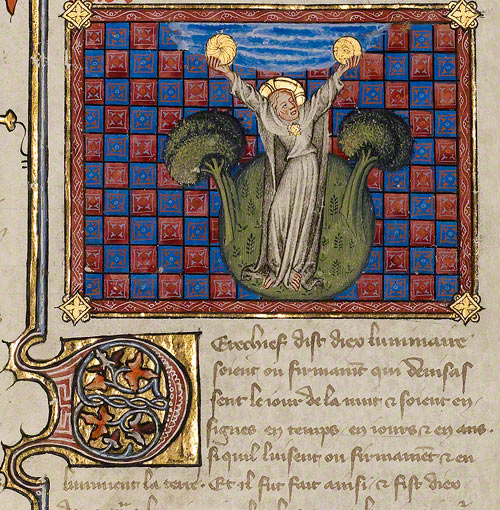 Derechief dist diex luminaire
soient ou firmament qui deuisas
sent le iour de la nuit ⁊ soient en
signes en temps en iours ⁊ en ans.
si quil luisent ou firmament ⁊ en
luminent la terre. Et il fut fait ainsi ⁊ fist diex